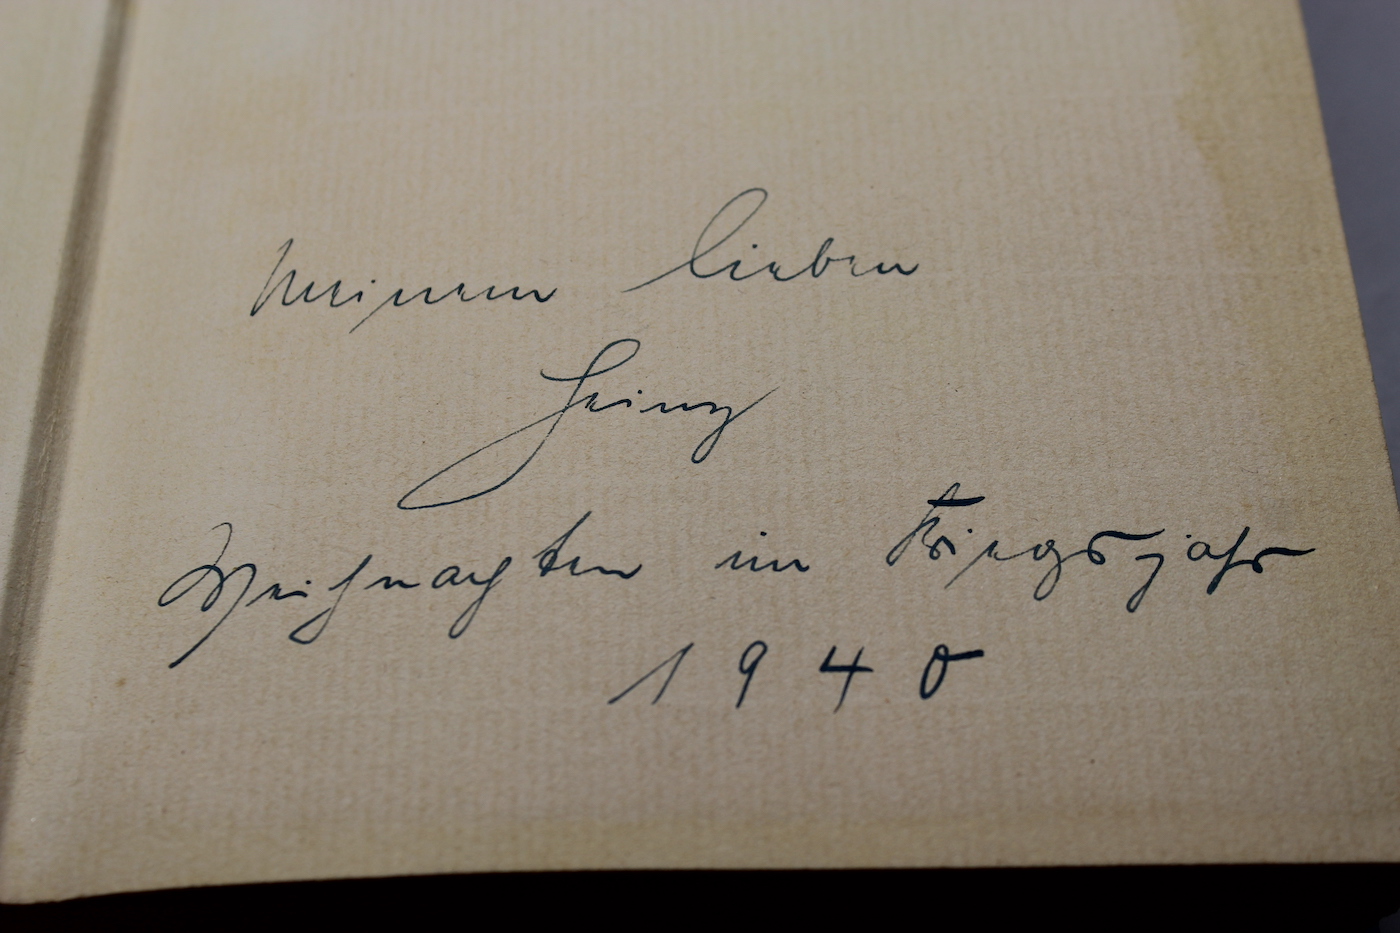 Meinem lieben
Heinz
Weihnachten im Kriegsjahr
1940